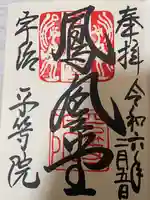 奉拝
令和六年二月五日
鳳凰堂
宇治
平等院